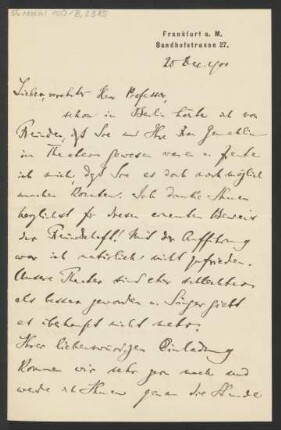 Frankfurt a. M.
Sandhofstrasse 27.
25 Dec. 1901
Lieber, verehrter Herr Professor,
schon in Berlin hörte ich von
Freunden, daß Sie und Ihre Frau Gemahlin
im Theater gewesen waren u. freute
ich mich daß Sie es doch noch möglich
machen konnten. Ich danke Ihnen
herzlichst für diesen erneuten Beweis
der Freundschaft! Mit der Aufführung
war ich natürlich nicht zufrieden.
Unsere Theater sind eher schlechter
als besser geworden u. Sänger giebt
es überhaupt nicht mehr.
Ihrer liebenswürdigen Einladung
kommen wir sehr gern nach und
werde ich Ihnen genau die Stunde